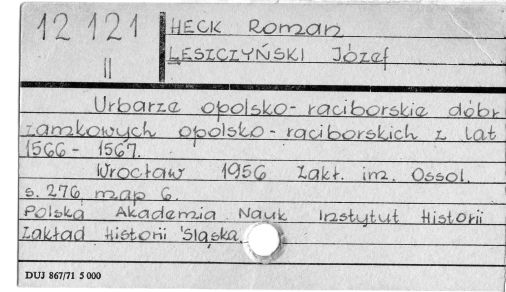 12 121
II
HECK Roman
LESZCZYŃSKI Józef
Urbarze opolsko-raciborskie dóbr
zamkowych opolsko-raciborskich z lat
1566-1567.
Wrocław 1956 Zakł. im. Ossol.
s. 276, map 6.
Polska Akademia Nauk Instytut Historii
Zakład Historii Śląska.
DUJ 867/71 5 000